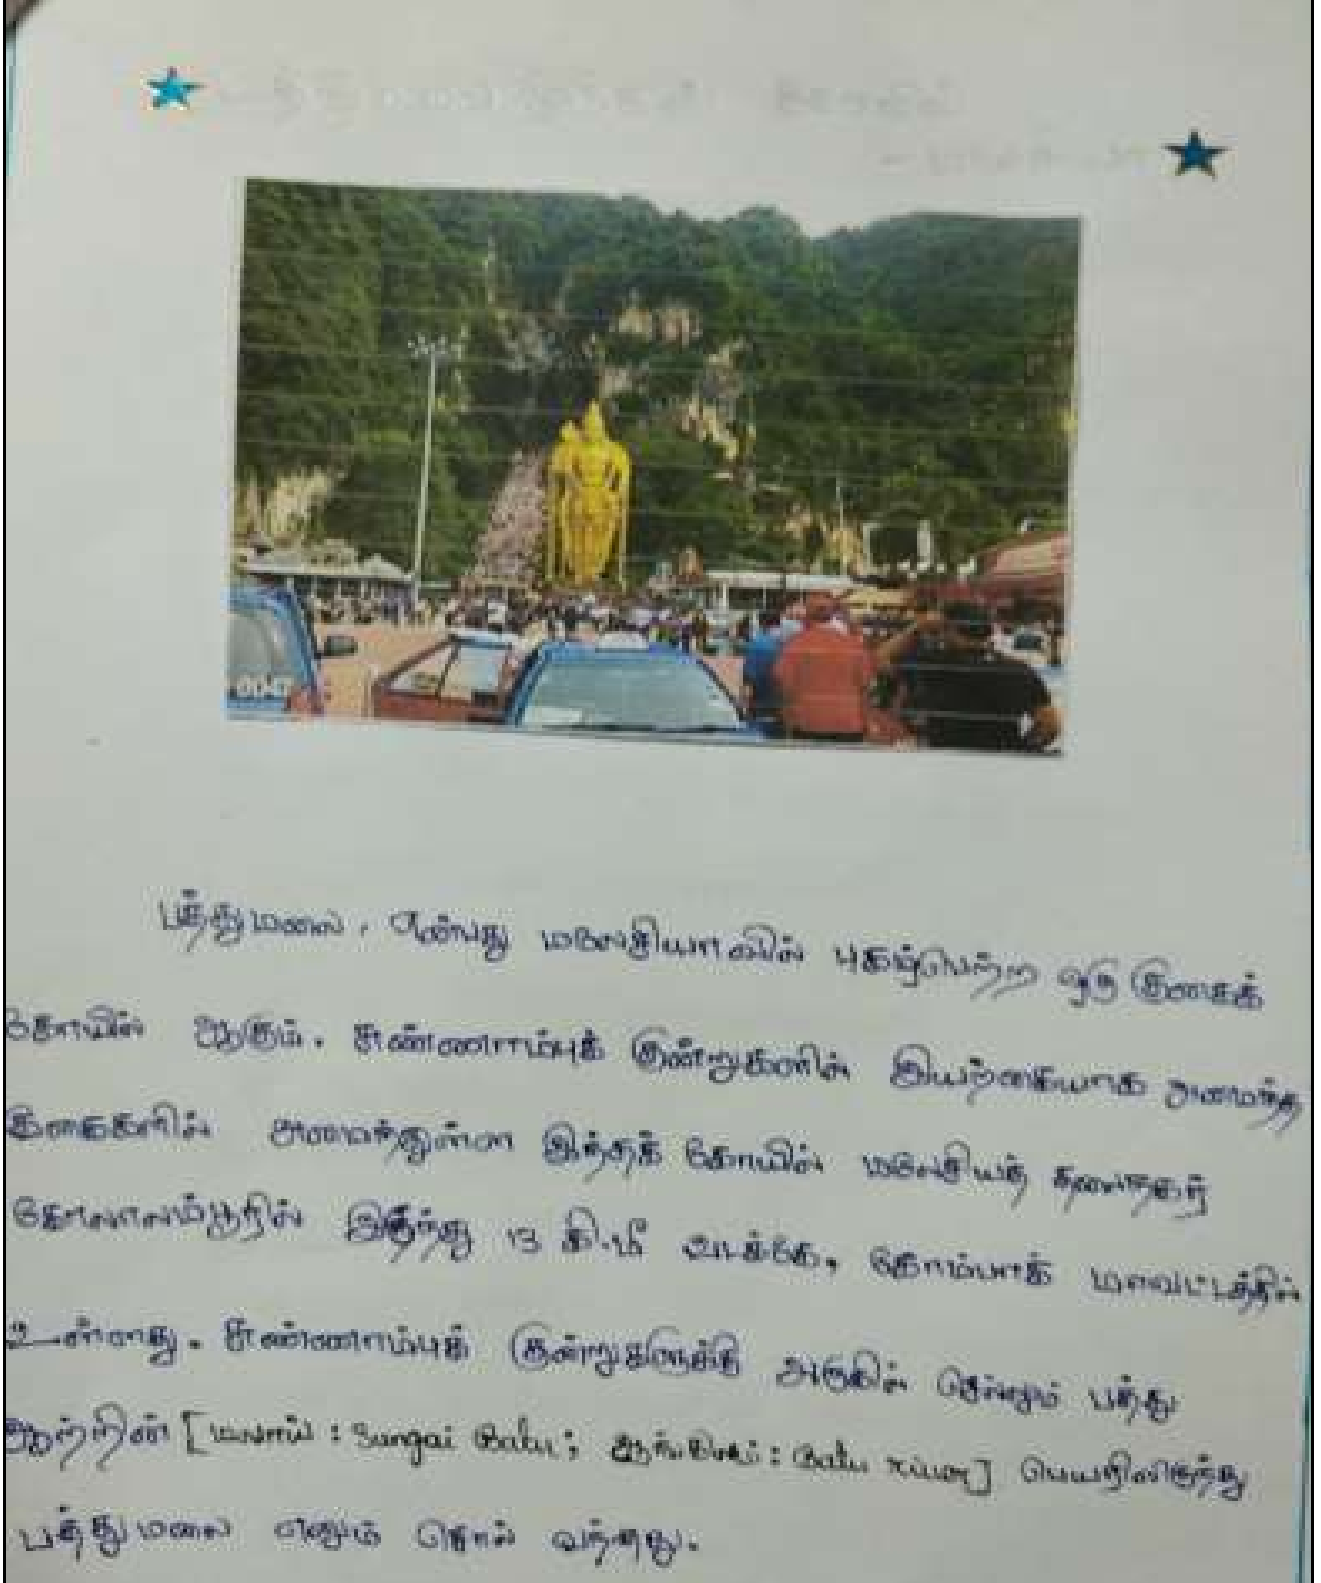 பத்துமலை, என்பது மலேசியாவில் புகழ்பெற்ற ஒரு குகைக்
கோயில் ஆகும். சுண்ணாம்புக் குன்றுகளில் இயற்கையாக அமைந்த
குகைகளில் அமைந்துள்ள இந்தக் கோயில் மலேசியத் தலைநகர்
கோலாலம்பூரில் இருந்து 13 கி.மீ வடக்கே, கோம்பாக் மாவட்டத்தில்
உள்ளது. சுண்ணாம்புக் குன்றுகளுக்கு அருகில் செல்லும் பத்து
ஆற்றின் [மலாய் : Sungai Batu; ஆங்கிலம் : Batu River] பெயரிலிருந்து
பத்துமலை எனும் சொல் வந்தது.